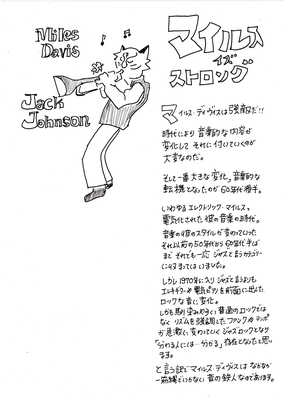 Miles
Davis
Jack
Johnson
マイルス
イズ
ストロング
マイルス・デイヴィスは強敵だ!!
時代により音楽的な内容が
変化して それに付いていくのが
大変なのだ。
そして一番大きな変化、音楽的な
転機となったのが60年代後半。
いわゆるエレクトリック・マイルス、
電気化された彼の音楽の時代。
音楽の彼のスタイルが変わっていった
それ以前の50年代から60年代半ば
まで それでも一応 ジャズと言うカテゴリー
に収まってはいました。
しかし1970年に入り ジャズと言うよりも
エレキギターや電気ピアノを前面に出した
ロックな音に変化。
しかも馴染みやすい普通のロックでは
なく リズムを強調した ファンクやテンポ
が急激に変わっていくジャズロックとなり
「分かる人には…分かる」存在となったと思い
ます。
と言う訳で マイルス・デイヴィスは なかなか
一筋縄でいかない 音の鉄人なのであります。